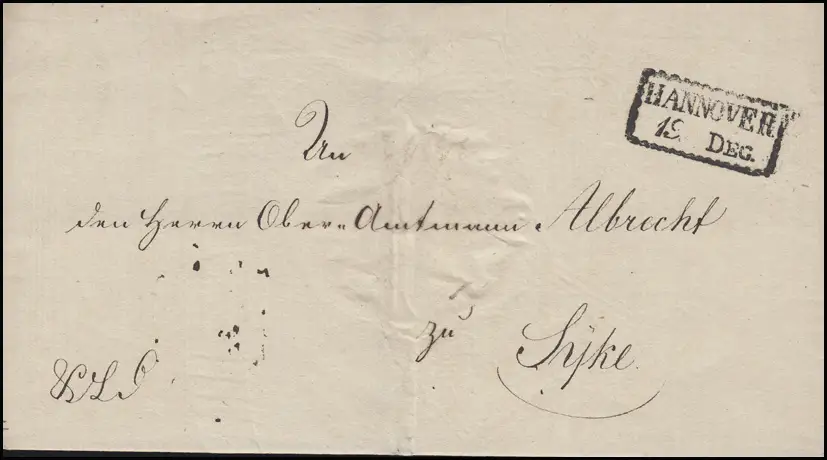 HANNOVER
19 DEC.
An
den Herrn Ober-Amtmann Albrecht
zu
Syke.